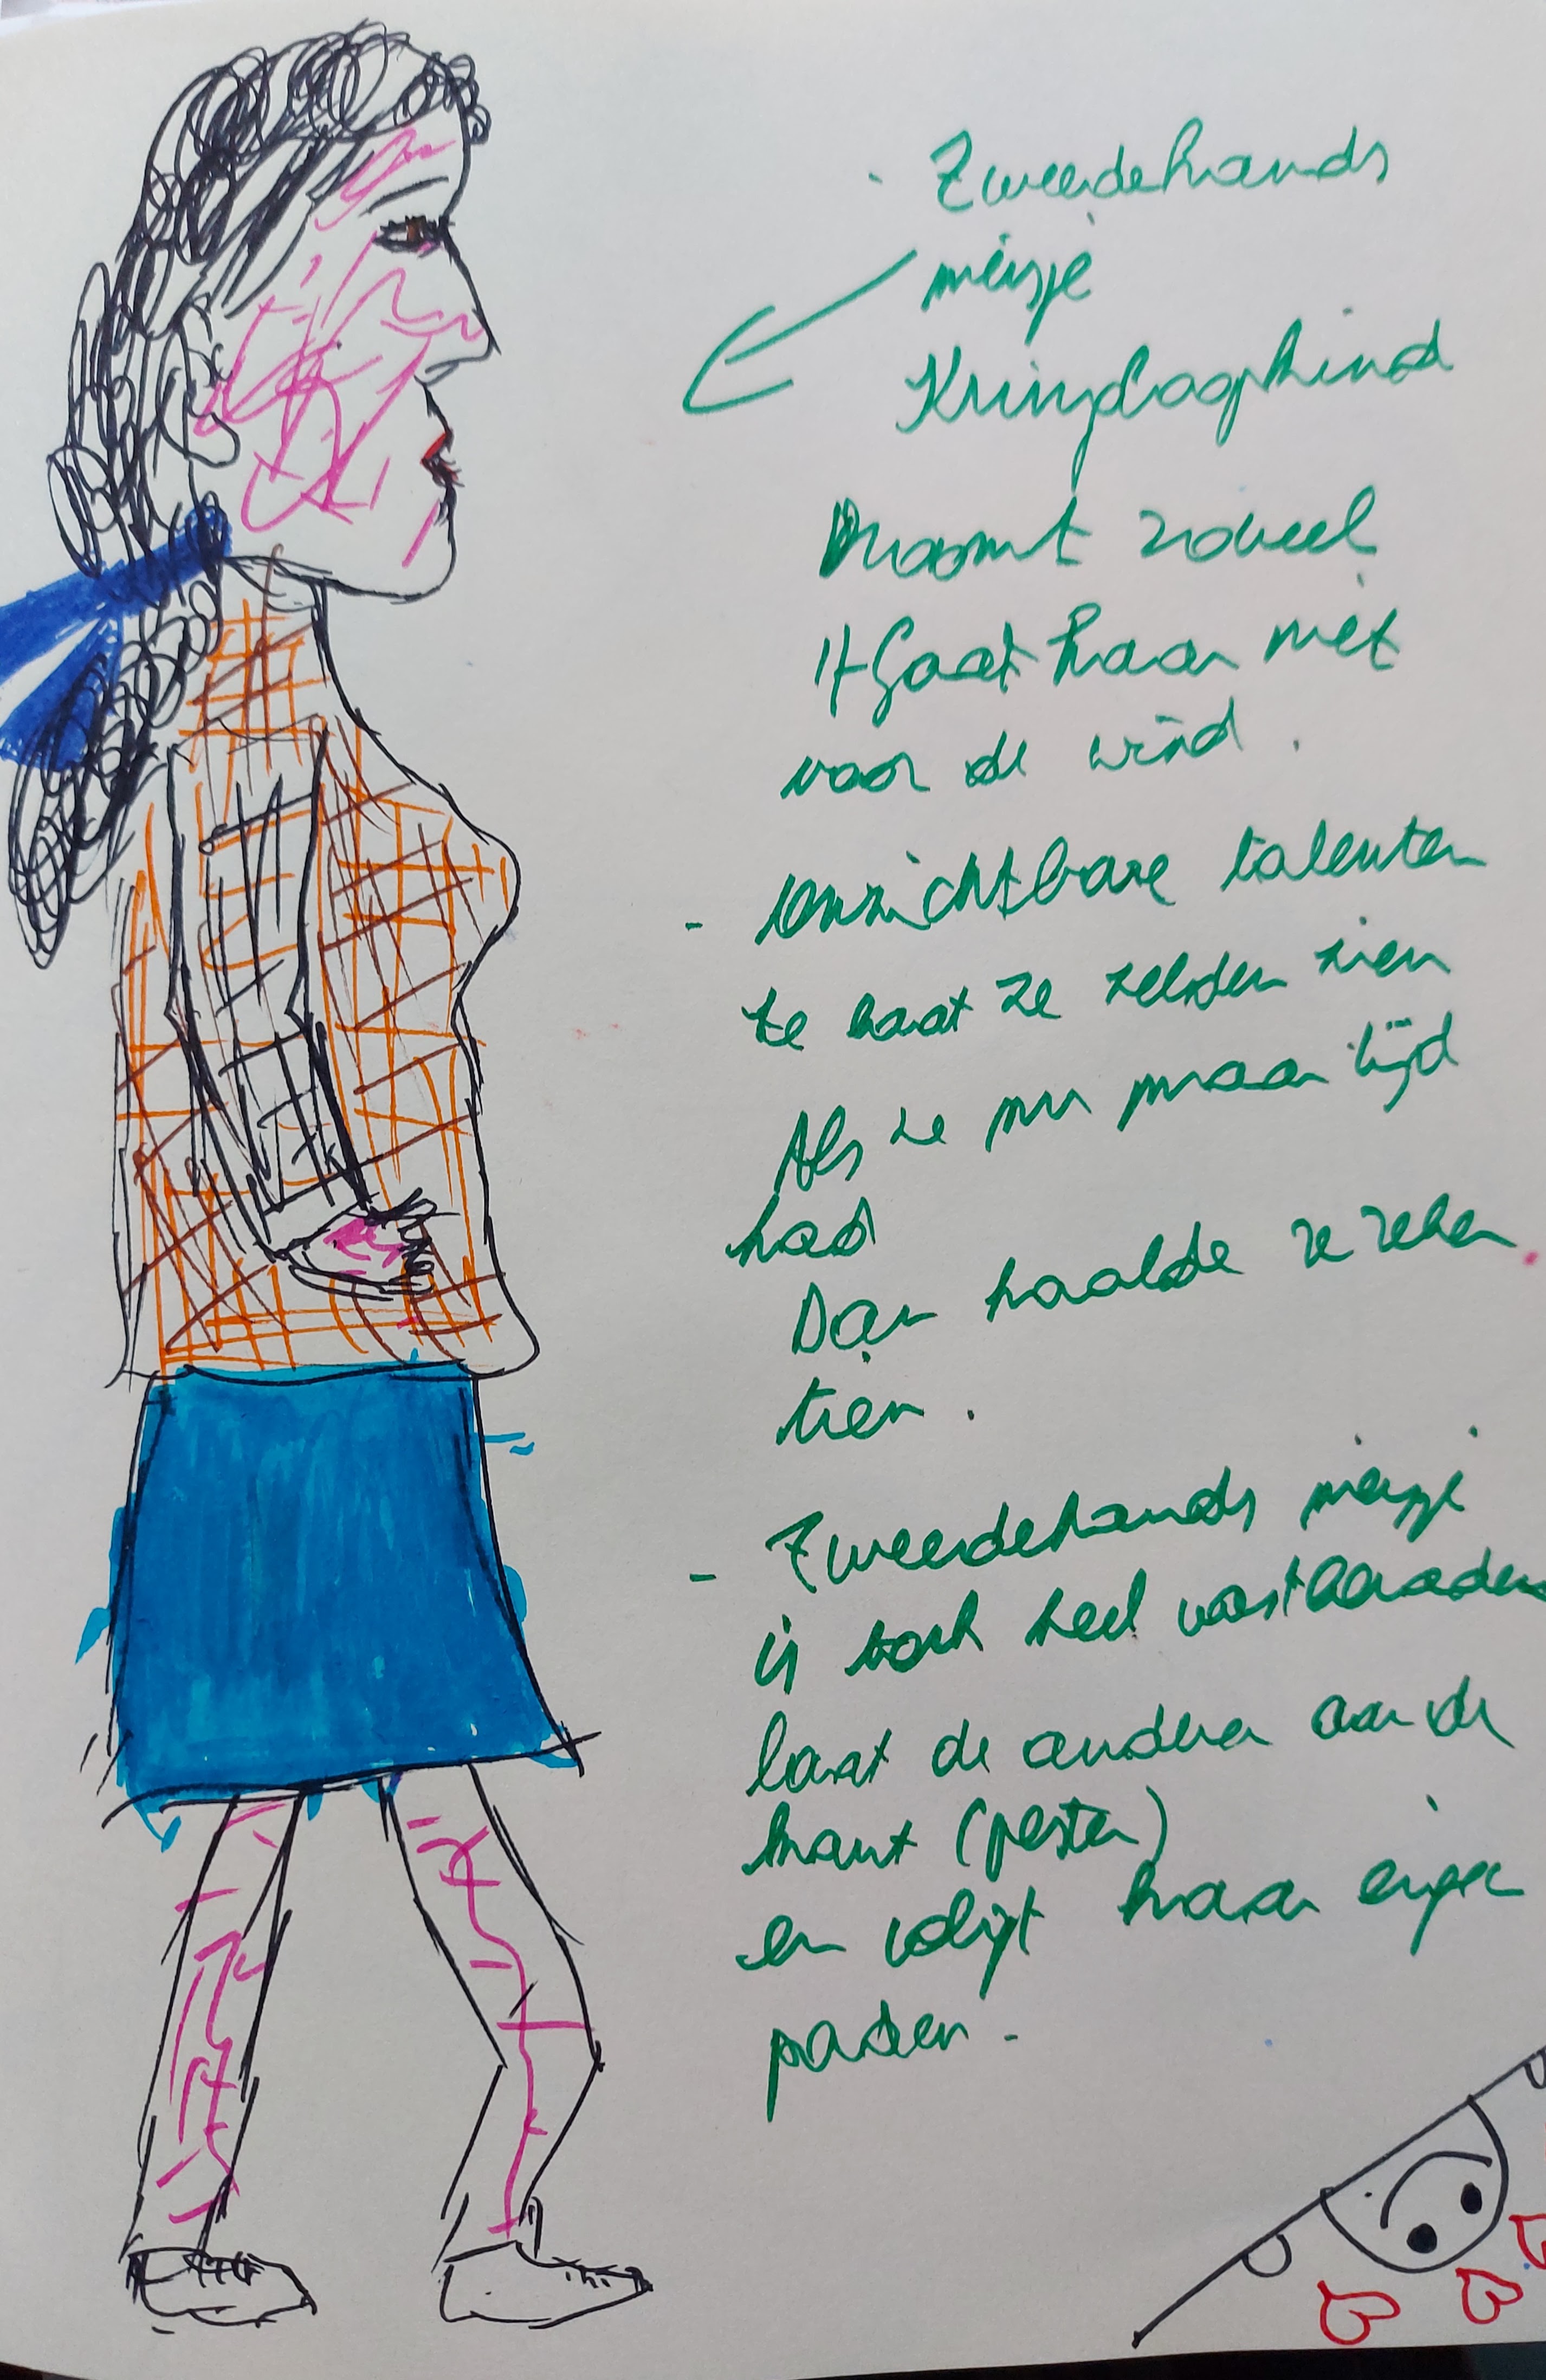 - Zweedehands
meisje
Kringloopkind
Droomt zoveel
't Gaat haar niet
voor de wind.
- Onzichtbare talenten
Ze laat ze zelden zien
Als ze nu maar tijd
had
Dan haalde ze zeker
tien.
- Zweedehands meisje
is toch heel vastberaden
laat de anderen aan de
kant (pesten)
en volgt haar eigen
paden -